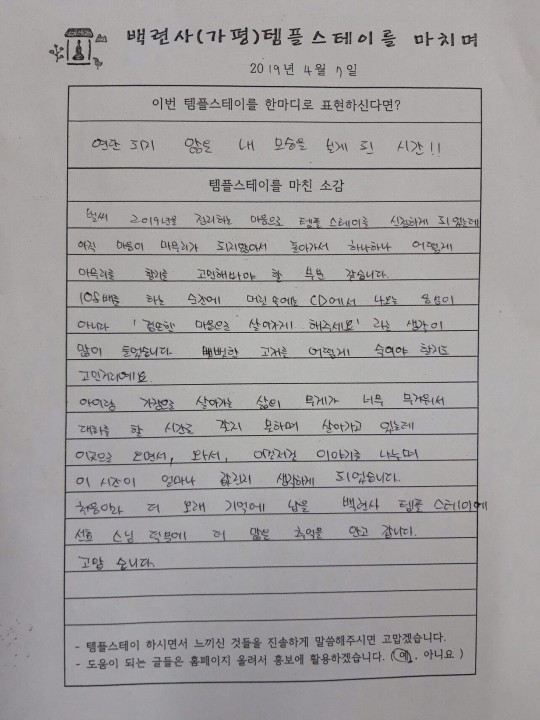 백련사(가평)템플스테이를 마치며
2019년 4월 7일
이번 템플스테이를 한마디로 표현하신다면?
연연 되지 않은 내 모습을 보게 된 시간!!
템플스테이를 마친 소감
벌써 2019년을 정리하는 마음으로 템플스테이를 신청하게 되었는데
아직 마음이 마무리가 되지않아서 돌아가서 하나하나 어떻게
마무리를 할지를 고민해봐야 할 부분 같습니다.
108배를 하는 순간에 머릿속에는 CD에서 나오는 음성이
아니라 '겸손한 마음으로 살아가게 해주세요' 라는 생각이
많이 들었습니다. 뻣뻣한 고개를 어떻게 숙여야 할지도
고민거리예요
아이랑 가장으로 살아가는 삶의 무게가 너무 무거워서
대화를 할 시간을 갖지 못하며 살아가고 있는데
이곳으로 오면서, 와서, 이런저런 이야기를 나누며
이 시간이 얼마나 값진지 생각하게 되었습니다.
처음이라 더 오래 기억에 남을 백련사 템플스테이에
선호 스님 덕분에 더 많은 추억을 안고 갑니다.
고맙 습니다.
- 템플스테이 하시면서 느끼신 것들을 진솔하게 말씀해주시면 고맙겠습니다.
- 도움이 되는 글들은 홈페이지 올려서 홍보에 활용하겠습니다. (예, 아니요)